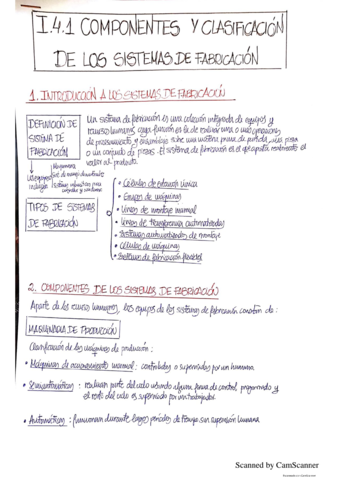 I.4.1 COMPONENTES Y CLASIFICACIÓN
DE LOS SISTEMAS DE FABRICACIÓN
1. INTRODUCCIÓN A LOS SISTEMAS DE FABRICACIÓN
DEFINICIÓN DE
SISTEMA DE
FABRICACIÓN
Un sistema de fabricación es una colección integrada de equipos y
recursos humanos cuya función es la de realizar una o más operaciones
de procesamiento y ensamblaje sobre una materia prima de partida, una pieza
o un conjunto de piezas. El sistema de fabricación es el que aporta realmente el
valor al producto.
TIPOS DE SISTEMAS
DE FABRICACIÓN
• Células de estación única
• Grupos de máquinas
• Líneas de montaje manual
• Líneas de transferencia automatizadas
• Sistemas automatizados de montaje
• Células de máquinas
• Sistemas de fabricación flexible
2. COMPONENTES DE LOS SISTEMAS DE FABRICACIÓN
Aparte de los humanos, los equipos de los sistemas de fabricación constan de:
MAQUINARIA DE PRODUCCIÓN
Clasificación de las máquinas de producción:
• Máquinas de accionamiento manual: controladas o supervisadas por un humano.
• Semiautomáticas: realizan parte del ciclo usando alguna forma de control programado y
el resto del ciclo es supervisado por un trabajador.
• Automáticas: funcionan durante largos periodos de tiempo sin supervisión humana
Scanned by CamScanner